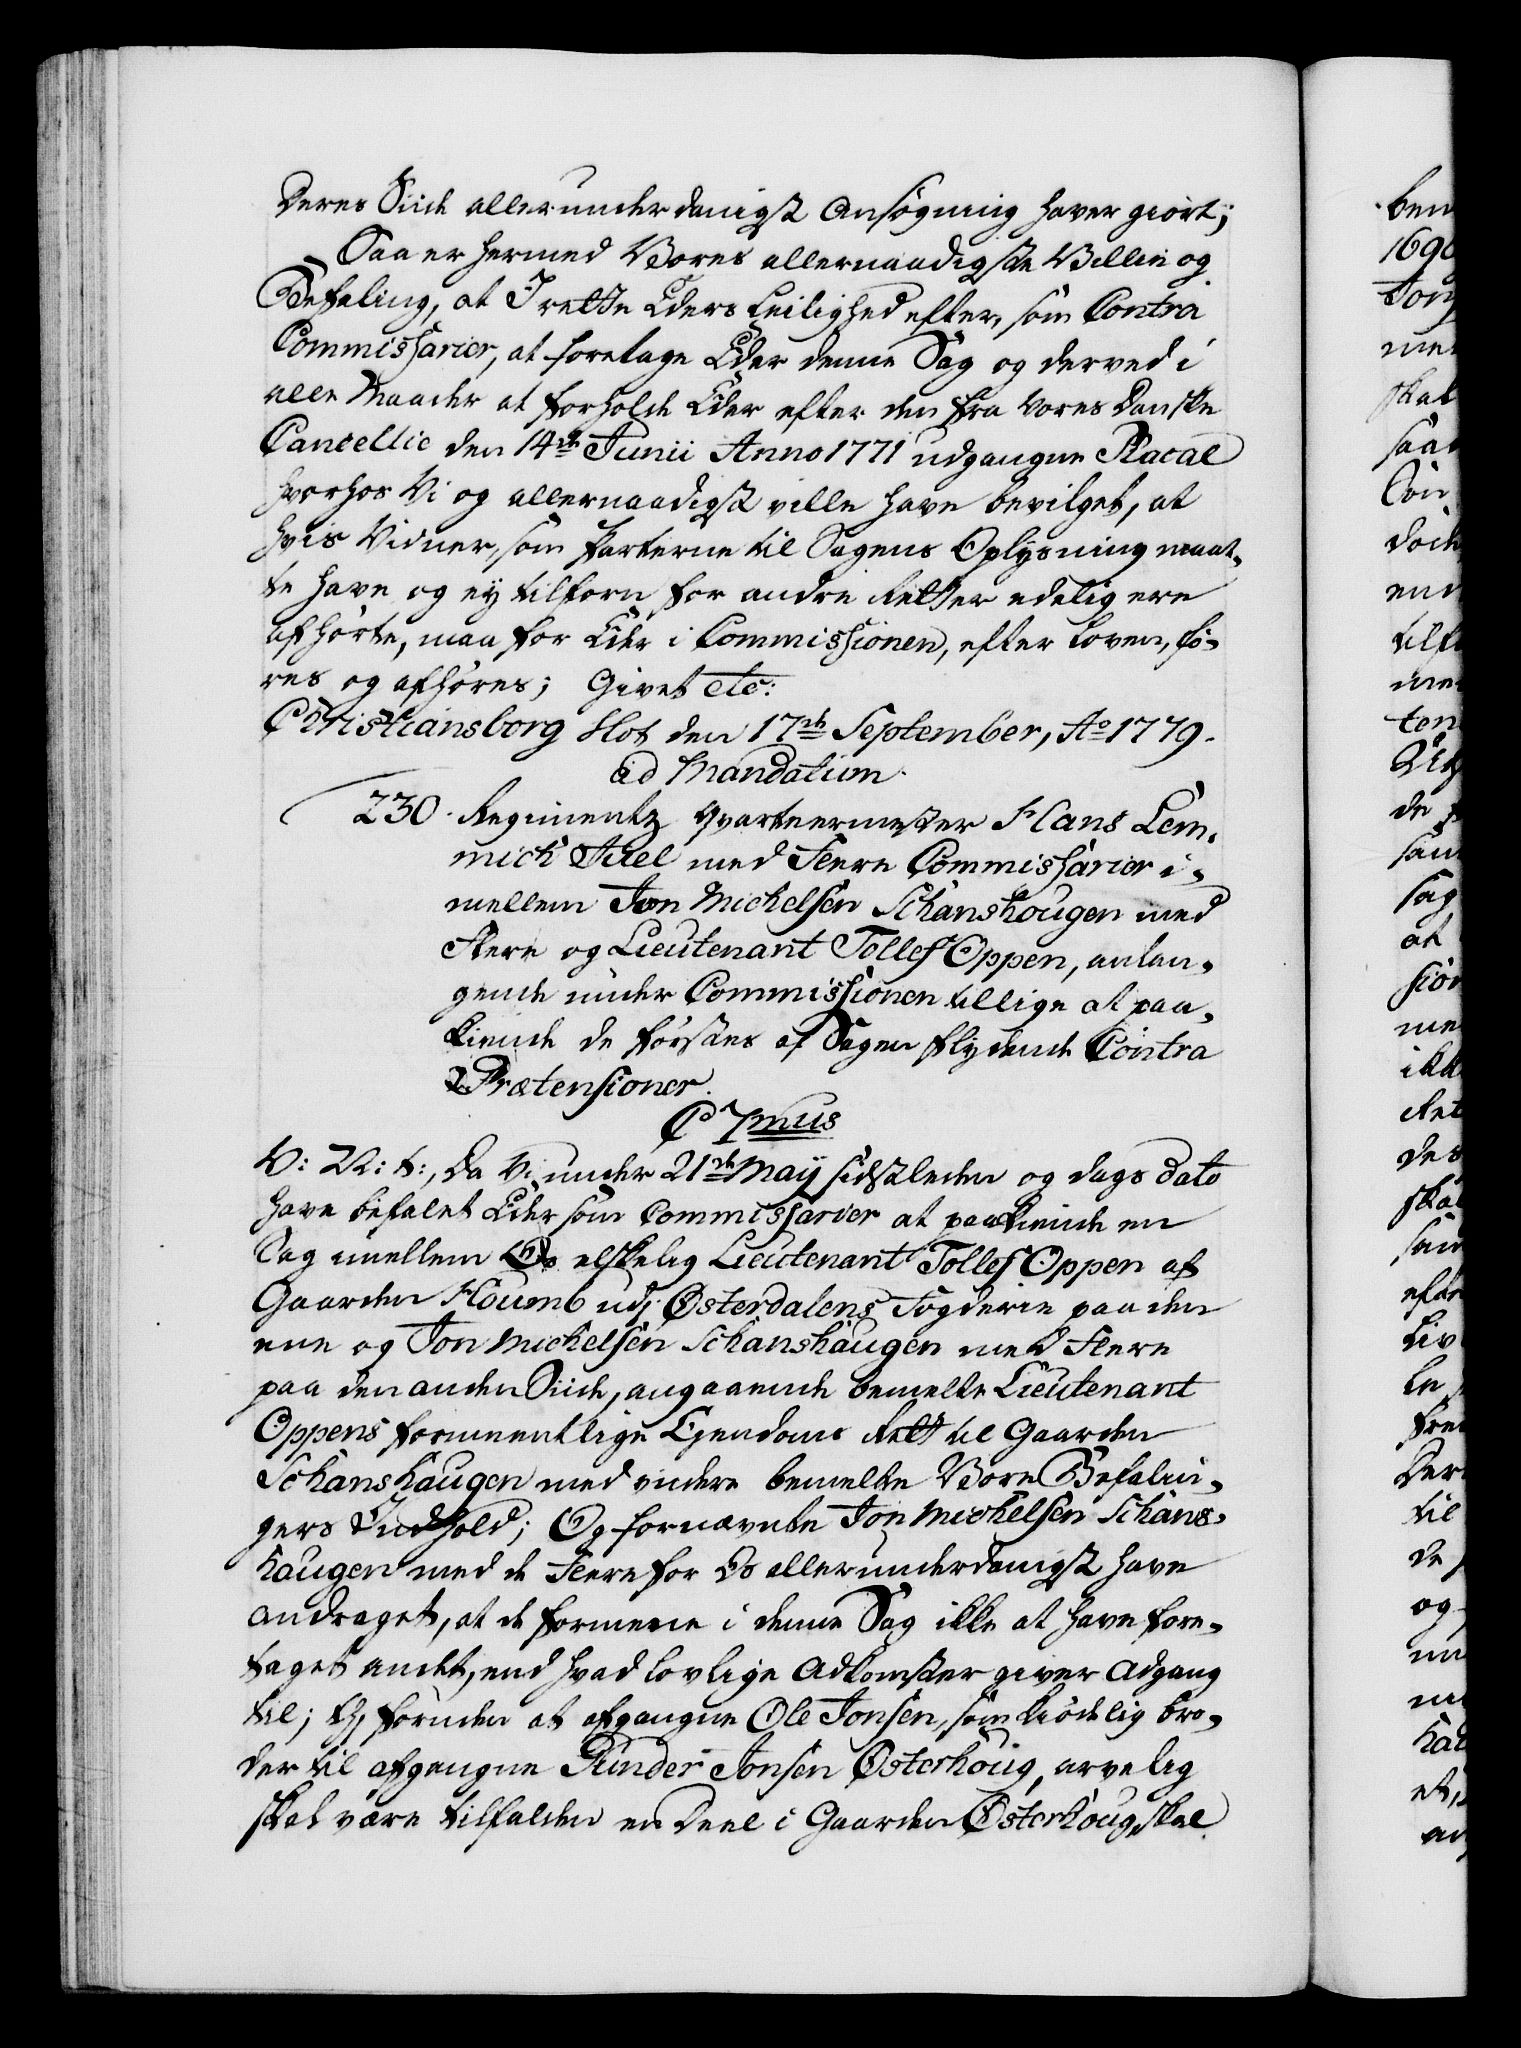 deres Siide allerunderdanigst Ansøgning haver giort;
Saa er hermed Vores allernaadigste Villie og
Befaling, at I rette Eders Leilighed efter, som Contra
Commissarier, at foretage Eder denne Sag og derved i
alle Maader at forholde Eder efter den fra Vores Danske
Cancellie den 14de Junii Anno 1771 udgangne Placat
hvorhos Vi og allernaadigst ville have bevilget, at
hvis Vidner, som Parterne til Sagens Oplysning maat-
te have og ey tilforn for andre Retter edelig ere
afhørte, maa for Eder i Commissionen, efter Loven, fø-
res og afhøres; Givet etc:
Christiansborg Slot den 17de September, Ao 1779.
ad Mandatum.
230. Regiments Qvarteermester Hans Lem-
mich Juel med Flere Commissarier i-
mellem Jon Michelsen Schanshougen med
Flere og Lieutenant Tollef Oppen, anlan-
gende under Commissionen tillige at paa-
kiende de førstes af Sagen flydende Contra
Prætensioner.
C 7mus
V: A: t:, Da Vi under 21de May sidstleden og dags dato
have befalet Eder som Commissarier at paakiende en
Sag imellem Os elskelig Lieutenant Tollef Oppen af
Gaarden Houmb udj Østerdalens Fogderie paa den
ene og Jon Michelsen Schanshaugen med Flere
paa den anden Siide, angaaende bemelte Lieutenant
Oppens formeentlige Ejendoms Rett til Gaarden
Schanshaugen med videre bemelte Vore Befalin-
gers Indhold; Og fornævnte Jon Michelsen Schans-
haugen med de Flere for Os allerunderdanigst have
andraget, at de formene i denne Sag ikke at have fore-
taget andet, end hvad lovlige Adkomster giver Adgang
til; Thj foruden at afgangne Ole Jonsen, som kiødelig Bro-
der til afgangne Gunder Jonsen Østerhoug, arvelig
skal være tilfalden en Deel i Gaarden Østerhoug, skal